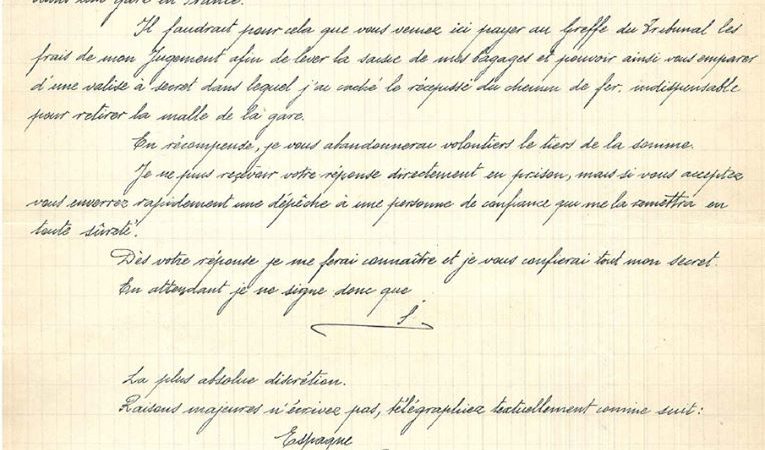 dans une gare en France.
Il faudrait pour cela que vous veniez ici payer au Greffe du Tribunal les
frais de mon Jugement afin de lever la saisie de mes bagages et pouvoir ainsi vous emparer
d'une valise à secret dans lequel j'ai caché le récépissé du chemin de fer. indispensable
pour retirer la malle de la gare.
En récompense, je vous abandonnerai volontiers le tiers de la somme.
Je ne puis recevoir votre réponse directement en prison, mais si vous acceptez
vous enverrez rapidement une dépêche à une personne de confiance qui me la remettra en
toute sûreté.
Dès votre réponse je me ferai connaître et je vous confierai tout mon secret.
En attendant je ne signe donc que
S.
La plus absolue discrétion.
Raisons majeures n'écrivez pas, télégraphiez textuellement comme suit:
Espagne